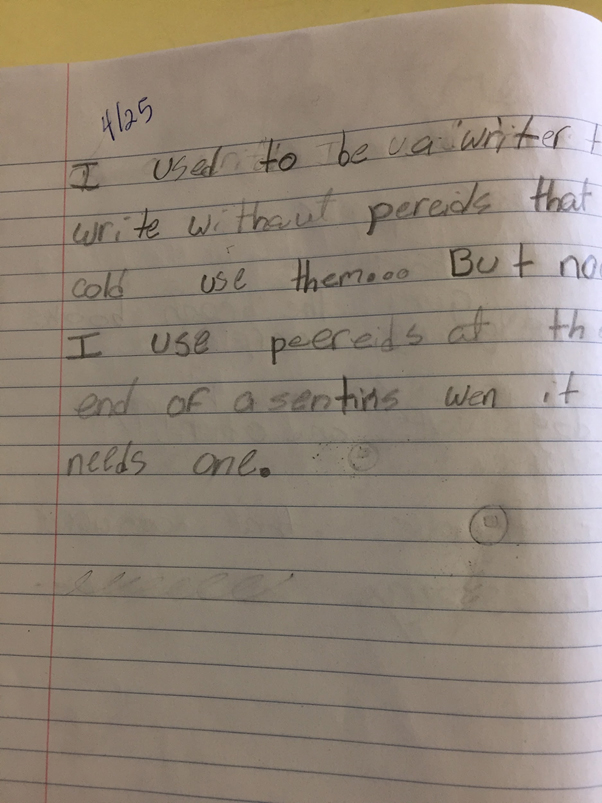 4/25
I used to be a writer t
write without pereids that
cold use them... But no
I use peereids at th
end of a sentins wen it
needs one.